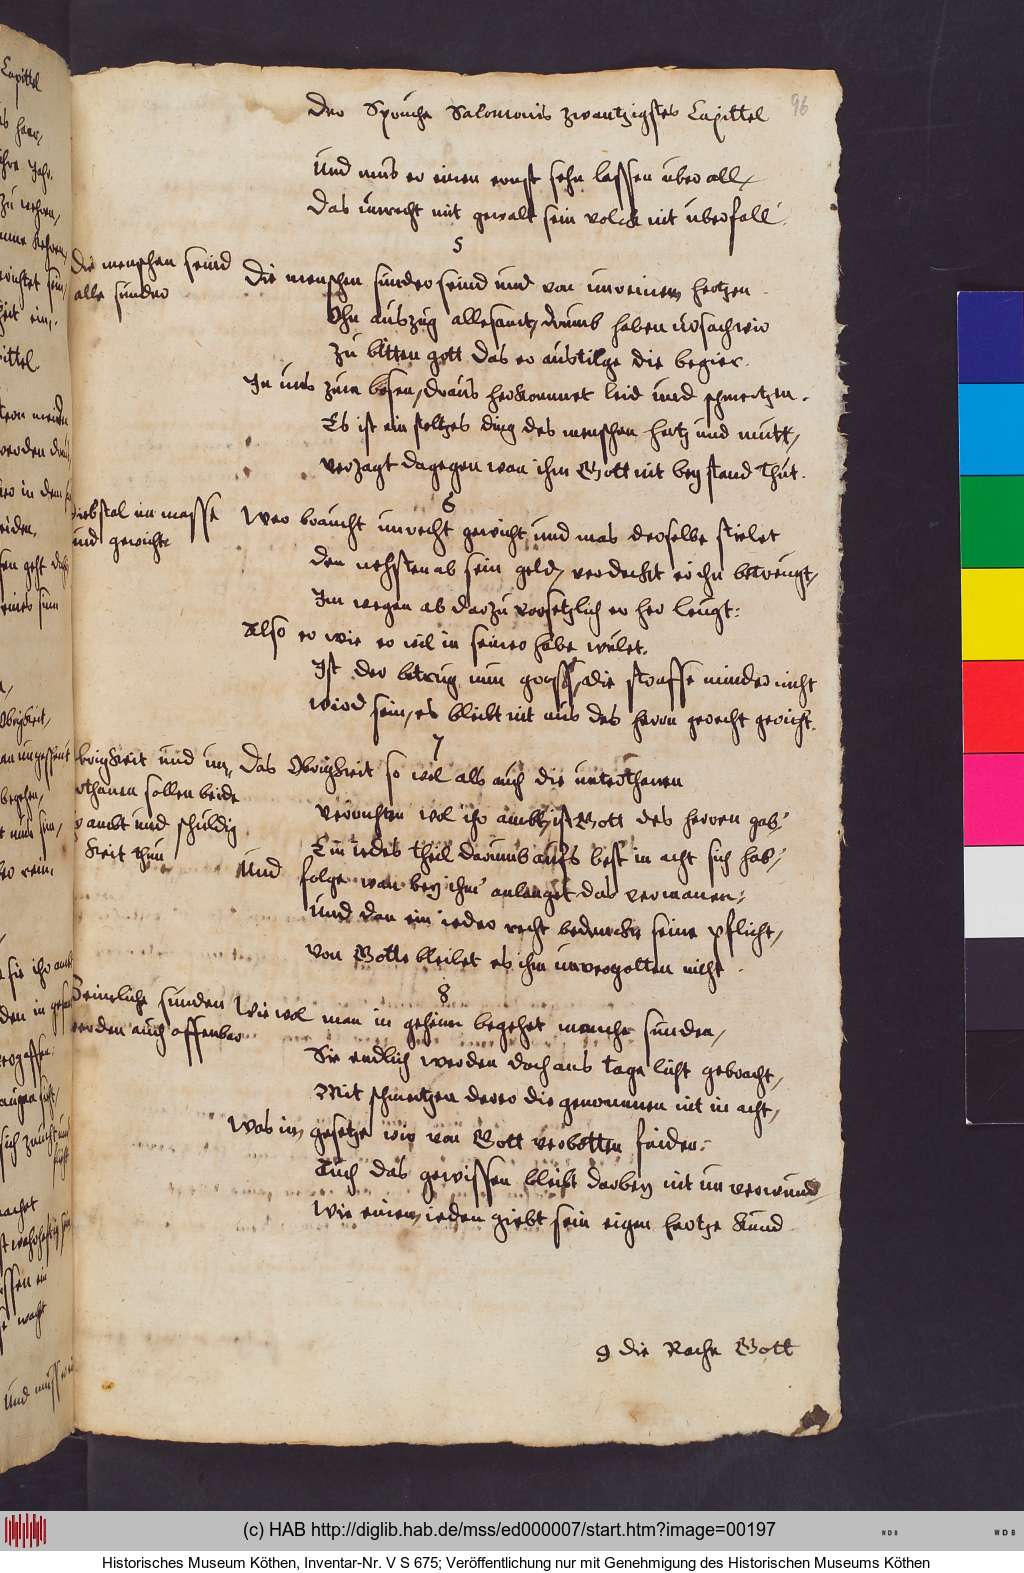 96
Der Spruche Salomonis zwantzigstes Capittel
Und mus er einen ernst sehn lassen uber all,
Das unrecht mit gewalt sein volck nit uberfall.
5
Die menschen seind
alle sunder
Die menschen sunder seind und von unreinem hertzen
Ohn auszug allesamt, drumb haben ursach wir
Zu bitten gott das er austilge die begier
In uns zum bösen, draus herkommet leid und schmertzen.
Es ist ein stoltzes ding des menschen hertz und mutt,
verzagt dagegen wan ihm Gott nit beystand thut.
6
Diebstal im masse
und gewichte
Wer braucht unrecht gewicht und mas derselbe stielet
Dem nehsten ab sein geld, verdeckt er ihn betreugt,
Im wegen ab darzu vorsetzlich er her leugt:
Also er wie er wil in seiner habe wület.
Ist der betrug nun gross, die straffe minder nicht
wird sein, es bleibt nit aus des herrn gerecht gericht.
7
Obrigkeit und un-
terthanen sollen beide
ambt und schuldig
keit thun
Das Obrigkeit so wol als auch die unterthanen
verrichten wol ihr ambt, ist Gott des herren gab
Ein iedes theil darumb aufs best in acht sich hab,
Und folge wan bey ihm anlanget das vermanen:
Und den ein ieder recht bedencke seine pflicht,
von Gotte bleibet es ihm unvergolten nicht.
8
Heimliche sunden
werden auch offenbar
Wie wol man in geheim begehet manche sunden,
Sie endlich werden doch ans tage licht gebracht,
Mit schmertzen derer die genommen nit in acht,
Was im gesetze wir von Gott verbotten finden:
Auch das gewissen bleibt darbey nit unverwund,
Wie einem ieden giebt sein eigen hertze kund
9 die Rache Gott
(c) HAB http://diglib.hab.de/mss/ed000007/start.htm?image=00197
WDB
WDB
Historisches Museum Köthen, Inventar-Nr. V S 675; Veröffentlichung nur mit Genehmigung des Historischen Museums Köthen